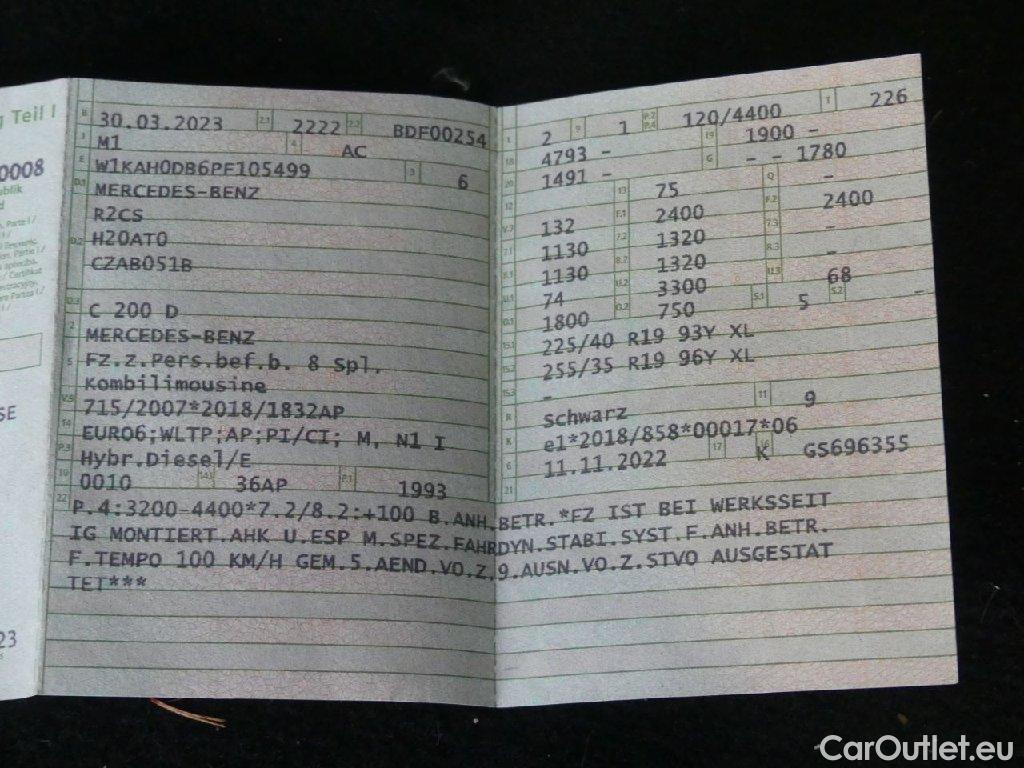 g Teil I
0008
ublik
d
SE
23
B 30.03.2023 2.1 2222 2.2 BDF00254
J M1 4 AC
E W1KAH0DB6PF105499 3 6
D.1 MERCEDES-BENZ
R2CS
D.2 H20AT0
CZAB051B
D.3 C 200 D
2 MERCEDES-BENZ
5 Fz.z.Pers.bef.b. 8 Spl.
Kombilimousine
V.9 715/2007*2018/1832AP
14 EURO6;WLTP;AP;PI/CI; M, N1 I
P.3 Hybr.Diesel/E
10 0010 14.1 36AP P.1 1993
L 2 9 1 P.2 P.4 120/4400 T 226
18 4793 - 19 1900 -
20 1491 - G - - 1780
12 - 13 75 Q -
V.7 132 F.1 2400 F.2 2400
7.1 1130 7.2 1320 7.3 -
8.1 1130 8.2 1320 8.3 -
U.1 74 U.2 3300 U.3 68
O.1 1800 O.2 750 S.1 5 S.2 -
15.1 225/40 R19 93Y XL
15.2 255/35 R19 96Y XL
15.3 -
R schwarz 11 9
K e1*2018/858*00017*06
6 11.11.2022 17 K 16 GS696355
21
22 P.4:3200-4400*7.2/8.2:+100 B.ANH.BETR.*FZ IST BEI WERKSSEIT
IG MONTIERT.AHK U.ESP M.SPEZ.FAHRDYN.STABI.SYST.F.ANH.BETR.
F.TEMPO 100 KM/H GEM.5.AEND.VO.Z.9.AUSN.VO.Z.STVO AUSGESTAT
TET***
CarOutlet.eu